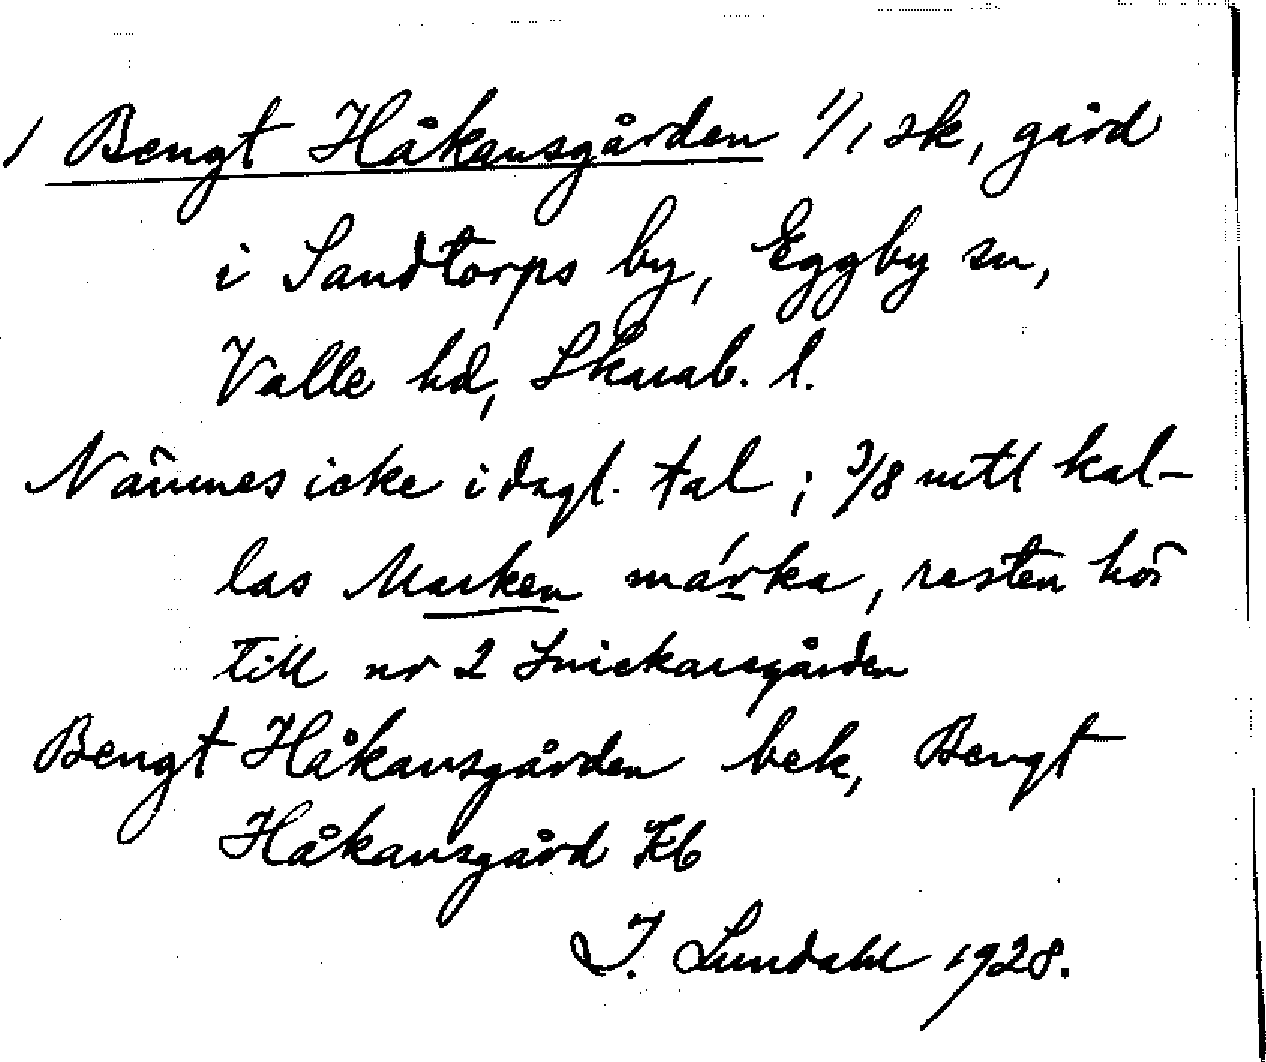 1 Bengt Håkansgården 1/1 sk, gård
i Sandtorps by, Eggby sn,
Valle hd, Skarab. l.
Nämnes icke i dagl. tal; 3/8 mtl kal-
las Marken márka, resten hör
till nr 2 Snickaregården
Bengt Håkansgården bek, Bengt
Håkansgård Kb
I. Lundahl 1928.